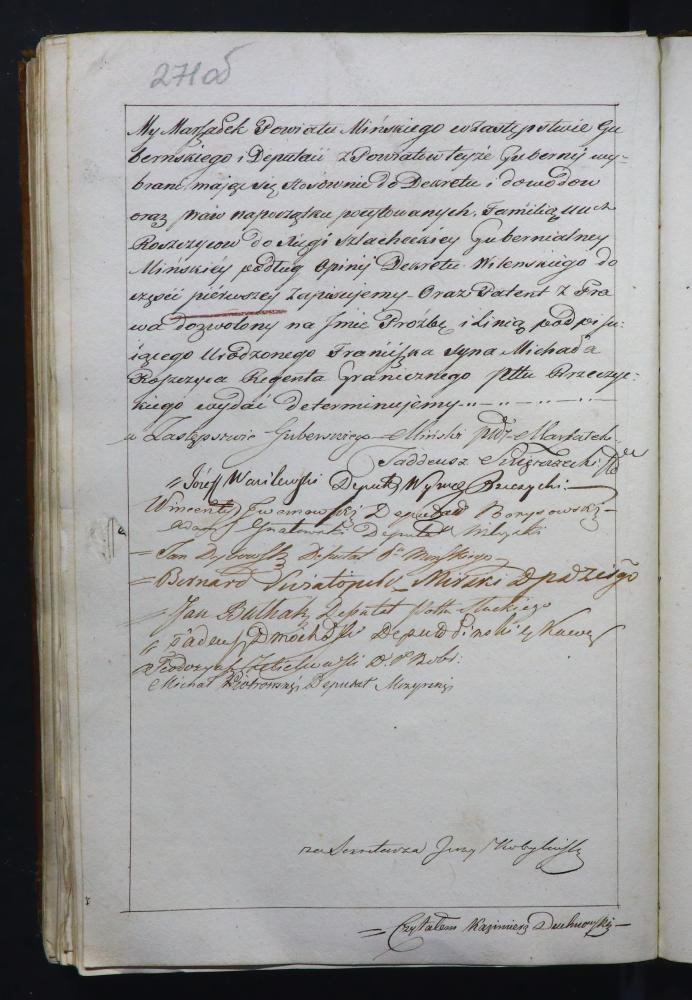 271 об
My Marszałek Powiatu Mińskiego w Zastępstwie Gu
bernskiego i Deputaci z Powiatow teyże Gubernij wy-
brani, mając się stosównie do Dekretu i dowodow
oraz praw napoczątku pocytowanych, Familią Ur.ch
Roszczycow do Xięgi Szlacheckiey Gubernialney
Mińskiéy podług Opinij Dekretu Wilenskiego do
części piérwszey Zapisujemy - Oraz Patent z Pra
wa dozwolony na Jmie Proźbę i Linią podpisu-
iącego Urodzonego Franciszka Syna Michała
Roszczyca Regenta Granicznego Pttu Rzeczyc-
kiego wydać determinujemy
w Zastępswie Guberskiego Miński Marszałek
Taddeusz
Józeff Wasilewski Deputt
Wincenty Deputat Borysowski
Adam Deputat Wileyski
Jan Deputat
Bernard Swiatopołk Mirski
Jan Bułhak Deputat Pttu Słuckiego
Tadeusz Deput Pinski
Teodozy D. P. Bobr:
Michał Piotrowski Deputat Mozyrski
za Sekretarza Jerzy Kobyliński
Czytałem Kazimierz